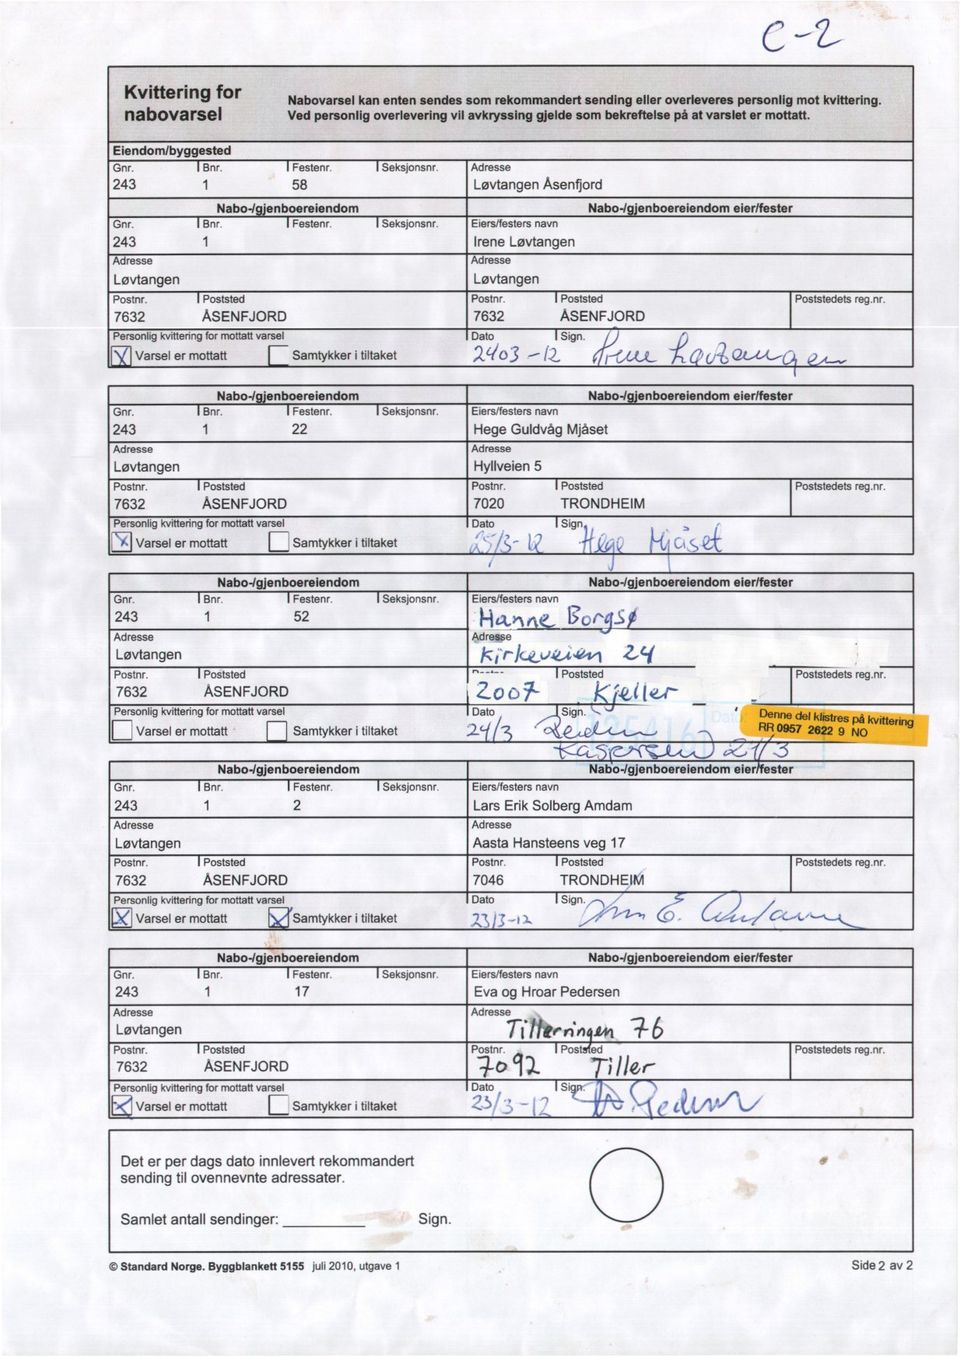 C-2
Kvittering for nabovarsel
Nabovarsel kan enten sendes som rekommandert sending eller overleveres personlig mot kvittering.
Ved personlig overlevering vil avkryssing gjelde som bekreftelse på at varslet er mottatt.
Eiendom/byggested
Gnr. Bnr. Festenr. Seksjonsnr. Adresse
243 1 58 Løvtangen Åsenfjord
Nabo-/gjenboereiendom Nabo-/gjenboereiendom eier/fester
Gnr. Bnr. Festenr. Seksjonsnr. Eiers/festers navn
243 1 Irene Løvtangen
Adresse Adresse
Løvtangen Løvtangen
Postnr. Poststed Postnr. Poststed Poststedets reg.nr.
7632 ÅSENFJORD 7632 ÅSENFJORD
Personlig kvittering for mottatt varsel Dato Sign.
X Varsel er mottatt Samtykker i tiltaket 24/03-12 Irene Løvtangen
Nabo-/gjenboereiendom Nabo-/gjenboereiendom eier/fester
Gnr. Bnr. Festenr. Seksjonsnr. Eiers/festers navn
243 1 22 Hege Guldvåg Mjåset
Adresse Adresse
Løvtangen Hyllveien 5
Postnr. Poststed Postnr. Poststed Poststedets reg.nr.
7632 ÅSENFJORD 7020 TRONDHEIM
Personlig kvittering for mottatt varsel Dato Sign.
X Varsel er mottatt Samtykker i tiltaket 25/3-12 Hege Mjåset
Nabo-/gjenboereiendom Nabo-/gjenboereiendom eier/fester
Gnr. Bnr. Festenr. Seksjonsnr. Eiers/festers navn
243 1 52 Hanne Borgsø
Adresse Adresse
Løvtangen Kirkeveien 24
Postnr. Poststed Poststed Poststedets reg.nr.
7632 ÅSENFJORD 2007 Kjeller
Personlig kvittering for mottatt varsel Dato Sign.
Denne del klistres på kvittering
RR 0957 2622 9 NO
Varsel er mottatt Samtykker i tiltaket 24/3 Reidun
Kaspersen 21/3
Nabo-/gjenboereiendom Nabo-/gjenboereiendom eier/fester
Gnr. Bnr. Festenr. Seksjonsnr. Eiers/festers navn
243 1 2 Lars Erik Solberg Amdam
Adresse Adresse
Løvtangen Aasta Hansteens veg 17
Postnr. Poststed Postnr. Poststed Poststedets reg.nr.
7632 ÅSENFJORD 7046 TRONDHEIM
Personlig kvittering for mottatt varsel Dato Sign.
X Varsel er mottatt X Samtykker i tiltaket 23/3-12
Nabo-/gjenboereiendom Nabo-/gjenboereiendom eier/fester
Gnr. Bnr. Festenr. Seksjonsnr. Eiers/festers navn
243 1 17 Eva og Hroar Pedersen
Adresse Adresse
Løvtangen Tillerringen 76
Postnr. Poststed Postnr. Poststed Poststedets reg.nr.
7632 ÅSENFJORD 7092 Tiller
Personlig kvittering for mottatt varsel Dato Sign.
X Varsel er mottatt Samtykker i tiltaket 23/3-12 Pedersen
Det er per dags dato innlevert rekommandert
sending til ovennevnte adressater.
Samlet antall sendinger: Sign.
© Standard Norge. Byggblankett 5155 juli 2010, utgave 1 Side 2 av 2